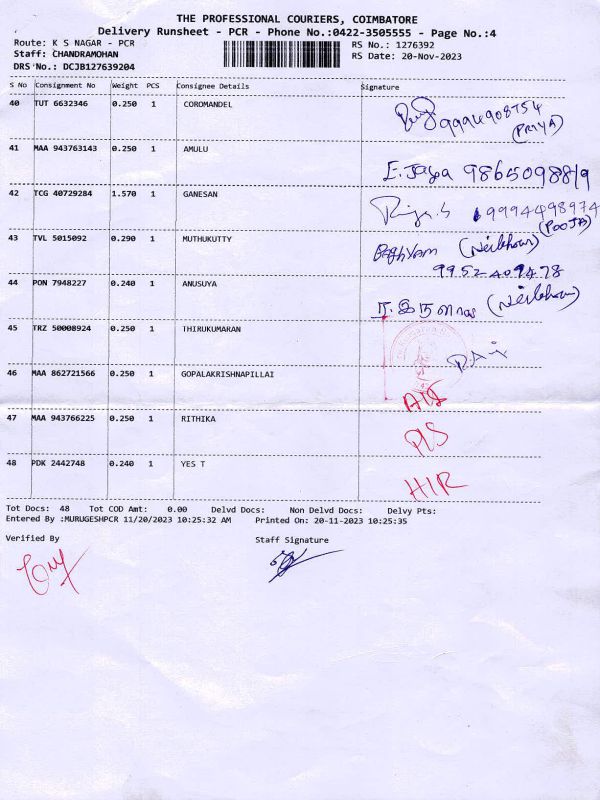 THE PROFESSIONAL COURIERS, COIMBATORE
Delivery Runsheet - PCR - Phone No.:0422-3505555 - Page No.:4
Route: K S NAGAR - PCR RS No.: 1276392
Staff: CHANDRAMOHAN RS Date: 20-Nov-2023
DRS No.: DCJB127639204
S No Consignment No Weight PCS Consignee Details Signature
40 TUT 6632346 0.250 1 COROMANDEL 9994908754
(PRIYA)
41 MAA 943763143 0.250 1 AMULU E. Jaya 9865098819
42 TCG 40729284 1.570 1 GANESAN 9994498974
(POOJA)
43 TVL 5015092 0.290 1 MUTHUKUTTY (Neibhour)
9952409478
44 PON 7948227 0.240 1 ANUSUYA (Neibhour)
45 TRZ 50008924 0.250 1 THIRUKUMARAN
46 MAA 862721566 0.250 1 GOPALAKRISHNAPILLAI
47 MAA 943766225 0.250 1 RITHIKA
48 PDK 2442748 0.240 1 YES T
Tot Docs: 48 Tot COD Amt: 0.00 Delvd Docs: Non Delvd Docs: Delvy Pts:
Entered By :MURUGESHPCR 11/20/2023 10:25:32 AM Printed On: 20-11-2023 10:25:35
Verified By Staff Signature